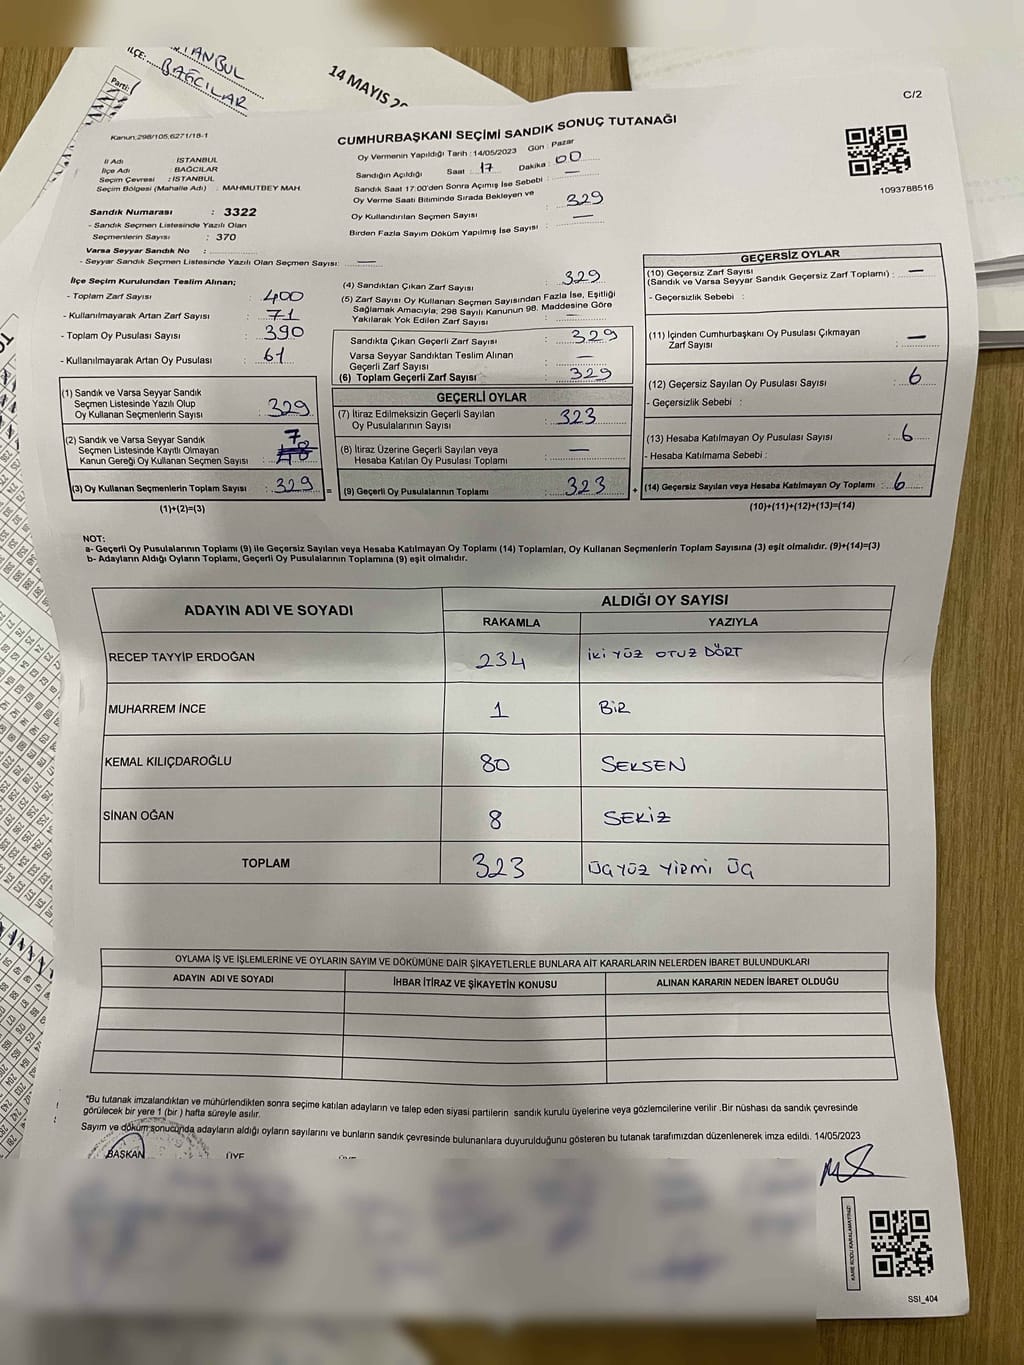 İLÇE: İSTANBUL
BAĞCILAR
Parti:
14 MAYIS 20
C/2
Kanun:298/105,6271/18-1
CUMHURBAŞKANI SEÇİMİ SANDIK SONUÇ TUTANAĞI
Oy Vermenin Yapıldığı Tarih : 14/05/2023 Gün : Pazar
1093788516
İl Adı : İSTANBUL
İlçe Adı : BAĞCILAR
Seçim Çevresi : İSTANBUL
Seçim Bölgesi (Mahalle Adı) : MAHMUTBEY MAH.
Sandık Numarası : 3322
- Sandık Seçmen Listesinde Yazılı Olan
Seçmenlerin Sayısı : 370
Varsa Seyyar Sandık No :
- Seyyar Sandık Seçmen Listesinde Yazılı Olan Seçmen Sayısı: —
Sandığın Açıldığı Saat : 17 Dakika : 00
Sandık Saat 17:00'den Sonra Açımış İse Sebebi : —
Oy Verme Saati Bitiminde Sırada Bekleyen ve
Oy Kullandırılan Seçmen Sayısı : 329
Birden Fazla Sayım Döküm Yapılmış İse Sayısı : —
İlçe Seçim Kurulundan Teslim Alınan;
- Toplam Zarf Sayısı : 400
- Kullanılmayarak Artan Zarf Sayısı : 71
- Toplam Oy Pusulası Sayısı : 390
- Kullanılmayarak Artan Oy Pusulası : 61
(1) Sandık ve Varsa Seyyar Sandık
Seçmen Listesinde Yazılı Olup
Oy Kullanan Seçmenlerin Sayısı : 329
(2) Sandık ve Varsa Seyyar Sandık
Seçmen Listesinde Kayıtlı Olmayan
Kanun Gereği Oy Kullanan Seçmen Sayısı : 7
(3) Oy Kullanan Seçmenlerin Toplam Sayısı : 329
(1)+(2)=(3)
(4) Sandıktan Çıkan Zarf Sayısı : 329
(5) Zarf Sayısı Oy Kullanan Seçmen Sayısından Fazla İse, Eşitliği
Sağlamak Amacıyla; 298 Sayılı Kanunun 98. Maddesine Göre
Yakılarak Yok Edilen Zarf Sayısı : —
Sandıkta Çıkan Geçerli Zarf Sayısı : 329
Varsa Seyyar Sandıktan Teslim Alınan
Geçerli Zarf Sayısı : —
(6) Toplam Geçerli Zarf Sayısı : 329
GEÇERLİ OYLAR
(7) İtiraz Edilmeksizin Geçerli Sayılan
Oy Pusulalarının Sayısı : 323
(8) İtiraz Üzerine Geçerli Sayılan veya
Hesaba Katılan Oy Pusulası Toplamı : —
= (9) Geçerli Oy Pusulalarının Toplamı : 323 +
GEÇERSİZ OYLAR
(10) Geçersiz Zarf Sayısı
(Sandık ve Varsa Seyyar Sandık Geçersiz Zarf Toplamı) : —
- Geçersizlik Sebebi :
(11) İçinden Cumhurbaşkanı Oy Pusulası Çıkmayan
Zarf Sayısı : —
(12) Geçersiz Sayılan Oy Pusulası Sayısı : 6
- Geçersizlik Sebebi :
(13) Hesaba Katılmayan Oy Pusulası Sayısı : 6
- Hesaba Katılmama Sebebi :
(14) Geçersiz Sayılan veya Hesaba Katılmayan Oy Toplamı : 6
(10)+(11)+(12)+(13)=(14)
NOT:
a- Geçerli Oy Pusulalarının Toplamı (9) ile Geçersiz Sayılan veya Hesaba Katılmayan Oy Toplamı (14) Toplamları, Oy Kullanan Seçmenlerin Toplam Sayısına (3) eşit olmalıdır. (9)+(14)=(3)
b- Adayların Aldığı Oyların Toplamı, Geçerli Oy Pusulalarının Toplamına (9) eşit olmalıdır.
ADAYIN ADI VE SOYADI ALDIĞI OY SAYISI
RAKAMLA YAZIYLA
RECEP TAYYİP ERDOĞAN 234 İKİ YÜZ OTUZ DÖRT
MUHARREM İNCE 1 BİR
KEMAL KILIÇDAROĞLU 80 SEKSEN
SİNAN OĞAN 8 SEKİZ
TOPLAM 323 ÜÇYÜZ YİRMİ ÜÇ
OYLAMA İŞ VE İŞLEMLERİNE VE OYLARIN SAYIM VE DÖKÜMÜNE DAİR ŞİKAYETLERLE BUNLARA AİT KARARLARIN NELERDEN İBARET BULUNDUKLARI
ADAYIN ADI VE SOYADI İHBAR İTİRAZ VE ŞİKAYETİN KONUSU ALINAN KARARIN NEDEN İBARET OLDUĞU
"Bu tutanak imzalandıktan ve mühürlendikten sonra seçime katılan adayların ve talep eden siyasi partilerin sandık kurulu üyelerine veya gözlemcilerine verilir .Bir nüshası da sandık çevresinde
görülecek bir yere 1 (bir ) hafta süreyle asılır.
Sayım ve döküm sonucunda adayların aldığı oyların sayılarını ve bunların sandık çevresinde bulunanlara duyurulduğunu gösteren bu tutanak tarafımızdan düzenlenerek imza edildi. 14/05/2023
BAŞKAN ÜYE
KARE KODU KARALAMAYINIZ!
SSI_404